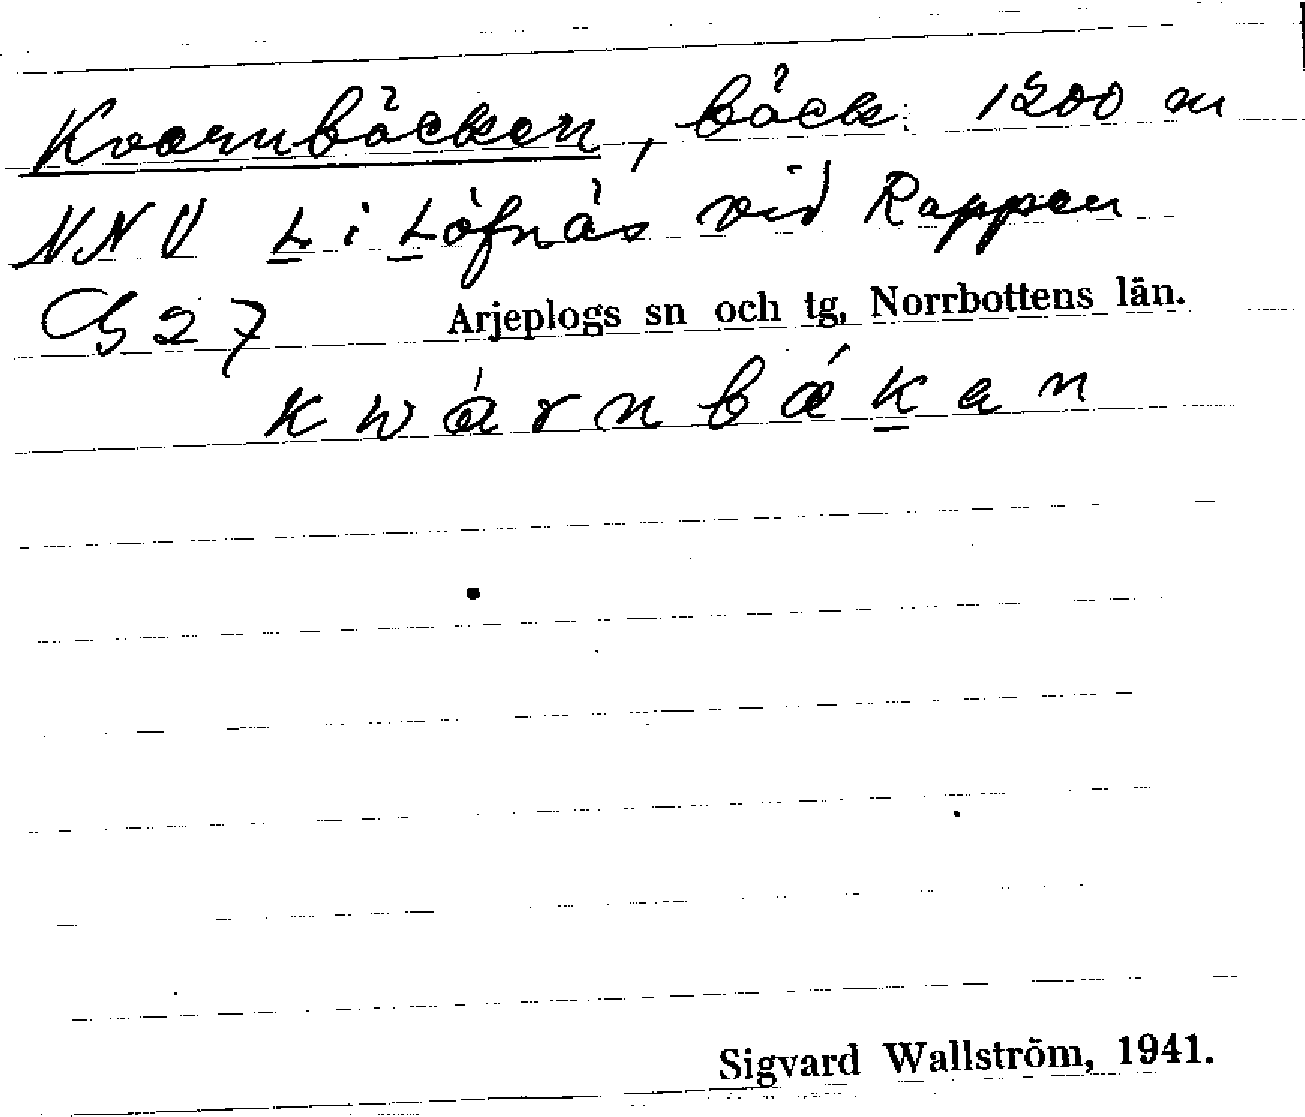 Kvarnbäcken, bäck 1200 m
NNV L i Löfnäs vid Rappen
C 27
Arjeplogs sn och tg, Norrbottens län.
k w á r n b ǽ k a n
Sigvard Wallström, 1941.